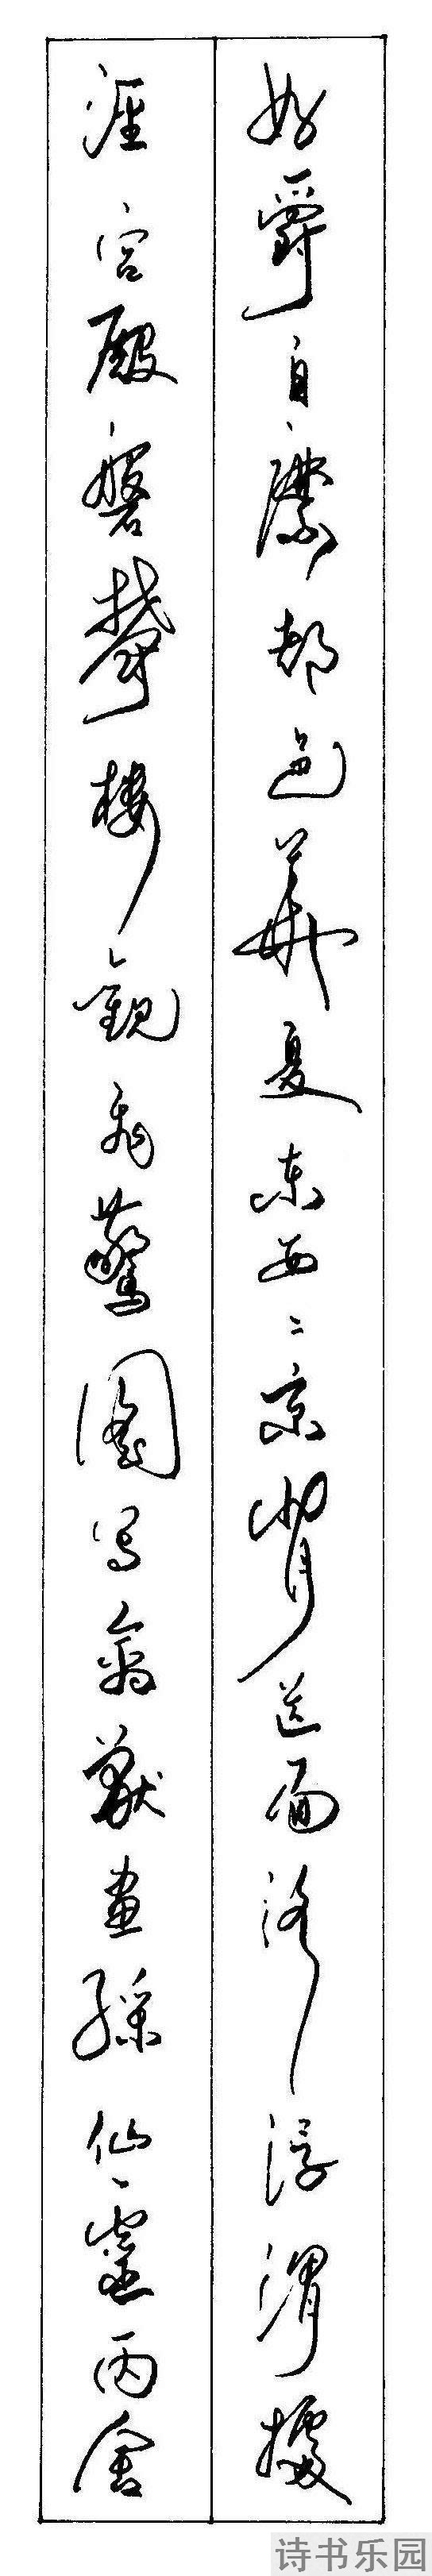 好爵自縻都邑華夏东西二京背邙面洛浮渭據
涇宫殿磐欝樓觀飛驚圖写禽獸畫綵仙靈丙舍
诗书乐园